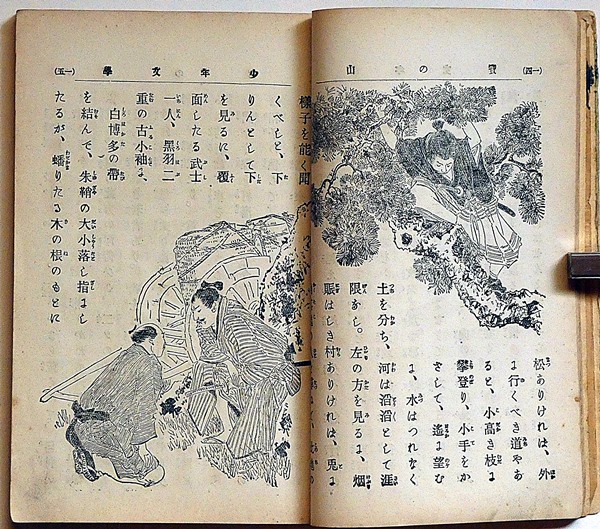 (一四)
松ありければ、外
に行くべき道やあ
ると、小高き枝に
攀登り、小手をか
ざして、遙に望む
に、水はつれなく
土を分ち、河は滔滔として涯
限なし。左の方を見るに、烟
賑はしき村ありければ、兎に
少年の文學
(一五)
樣子を能く聞
くべしと、下
りんとして下
を見るに、覆
面したる武士
一人、黒羽二
重の古小袖に、
白博多の帶
を結んで、朱鞘の大小落し指にし
たるが、蟠りたる木の根のもとに